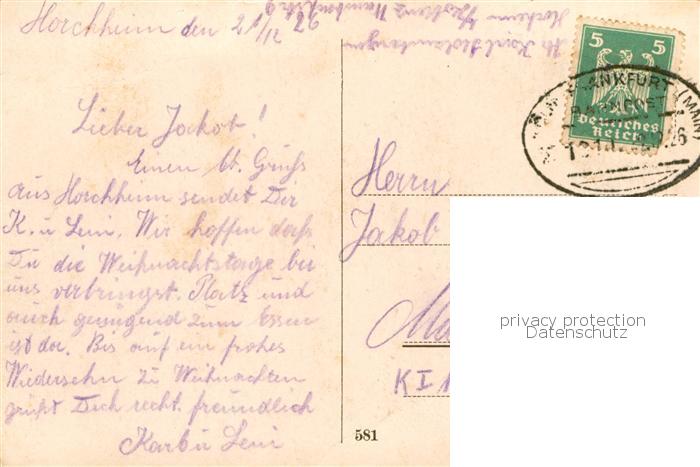 Horchheim den 21/12 26
Lieber Jakob!
Einen bt. Gruß
aus Horchheim sendet Dir
K. u Leni. Wir hoffen daß
Du die Weihnachtstage bei
uns verbringst. Platz und
auch genügend zum Essen
ist da. Bis auf ein frohes
Wiedersehn zu Weihnachten
grüßt Dich recht freundlich
Karl u Leni
581
5 5
Deutsches
Reich
FRANKFURT (MAIN)
BAHNPOST
26
Herrn
Jakob
KI
privacy protection
Datenschutz